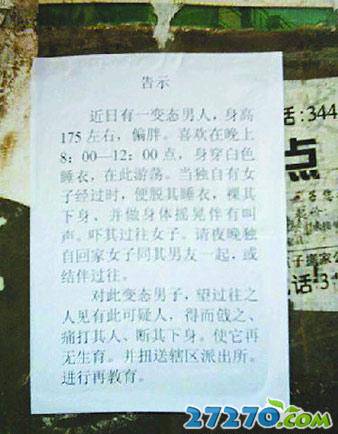 告示
近日有一变态男人，身高
175左右，偏胖。喜欢在晚上
8：00—12：00点，身穿白色
睡衣，在此游荡。当独自有女
子经过时，便脱其睡衣，裸其
下身、并做身体摇晃伴有叫
声。吓其过往女子。请夜晚独
自回家女子同其男友一起，或
结伴过往。
对此变态男子，望过往之
人见有此可疑人，得而戗之、
痛打其人、断其下身。使它再
无生育。并扭送辖区派出所。
进行再教育。
话:344
点
子搬家公
话-3
27270.com